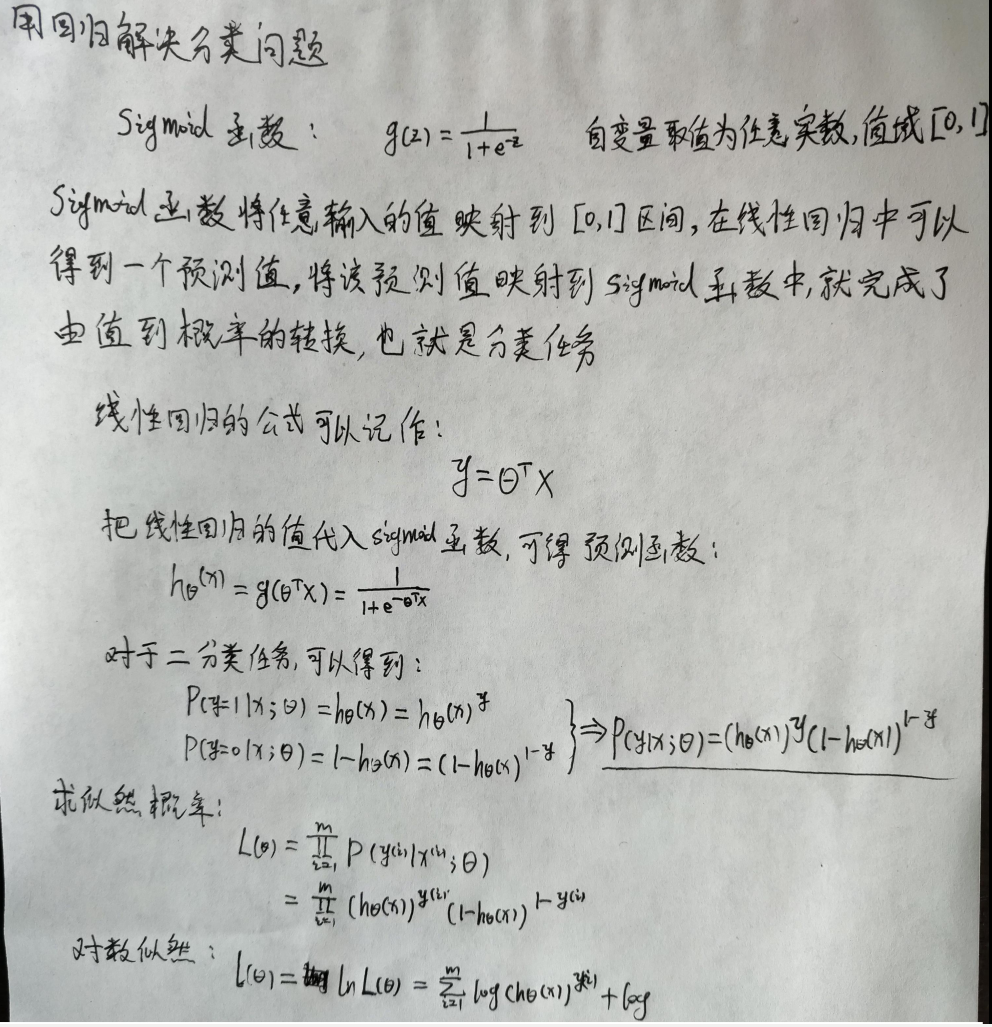 用回归解决分类问题
Sigmoid 函数： g(z) = 1/(1+e^{-z}) 自变量取值为任意实数,值域[0,1]
Sigmoid 函数将任意输入的值映射到[0,1]区间,在线性回归中可以
得到一个预测值,将该预测值映射到sigmoid函数中,就完成了
由值到概率的转换,也就是分类任务
线性回归的公式可以记作:
y=θ^T x
把线性回归的值代入sigmoid函数,可得预测函数:
h_θ(x) = g(θ^T x) = 1/(1+e^{-θ^T x})
对于二分类任务,可以得到:
P(y=1|x;θ) = h_θ(x) = h_θ(x)^y
P(y=0|x;θ) = 1-h_θ(x) = (1-h_θ(x))^{1-y} } ⇒ P(y|x;θ) = (h_θ(x))^y (1-h_θ(x))^{1-y}
求似然概率:
L(θ) = ∏_{i=1}^{m} P(y^{(i)}|x^{(i)};θ)
= ∏_{i=1}^{m} (h_θ(x))^{y^{(i)}} (1-h_θ(x))^{1-y^{(i)}}
对数似然: l(θ) = ln L(θ) = ∑_{i=1}^{m} log(h_θ(x))^{y^{(i)}} + log